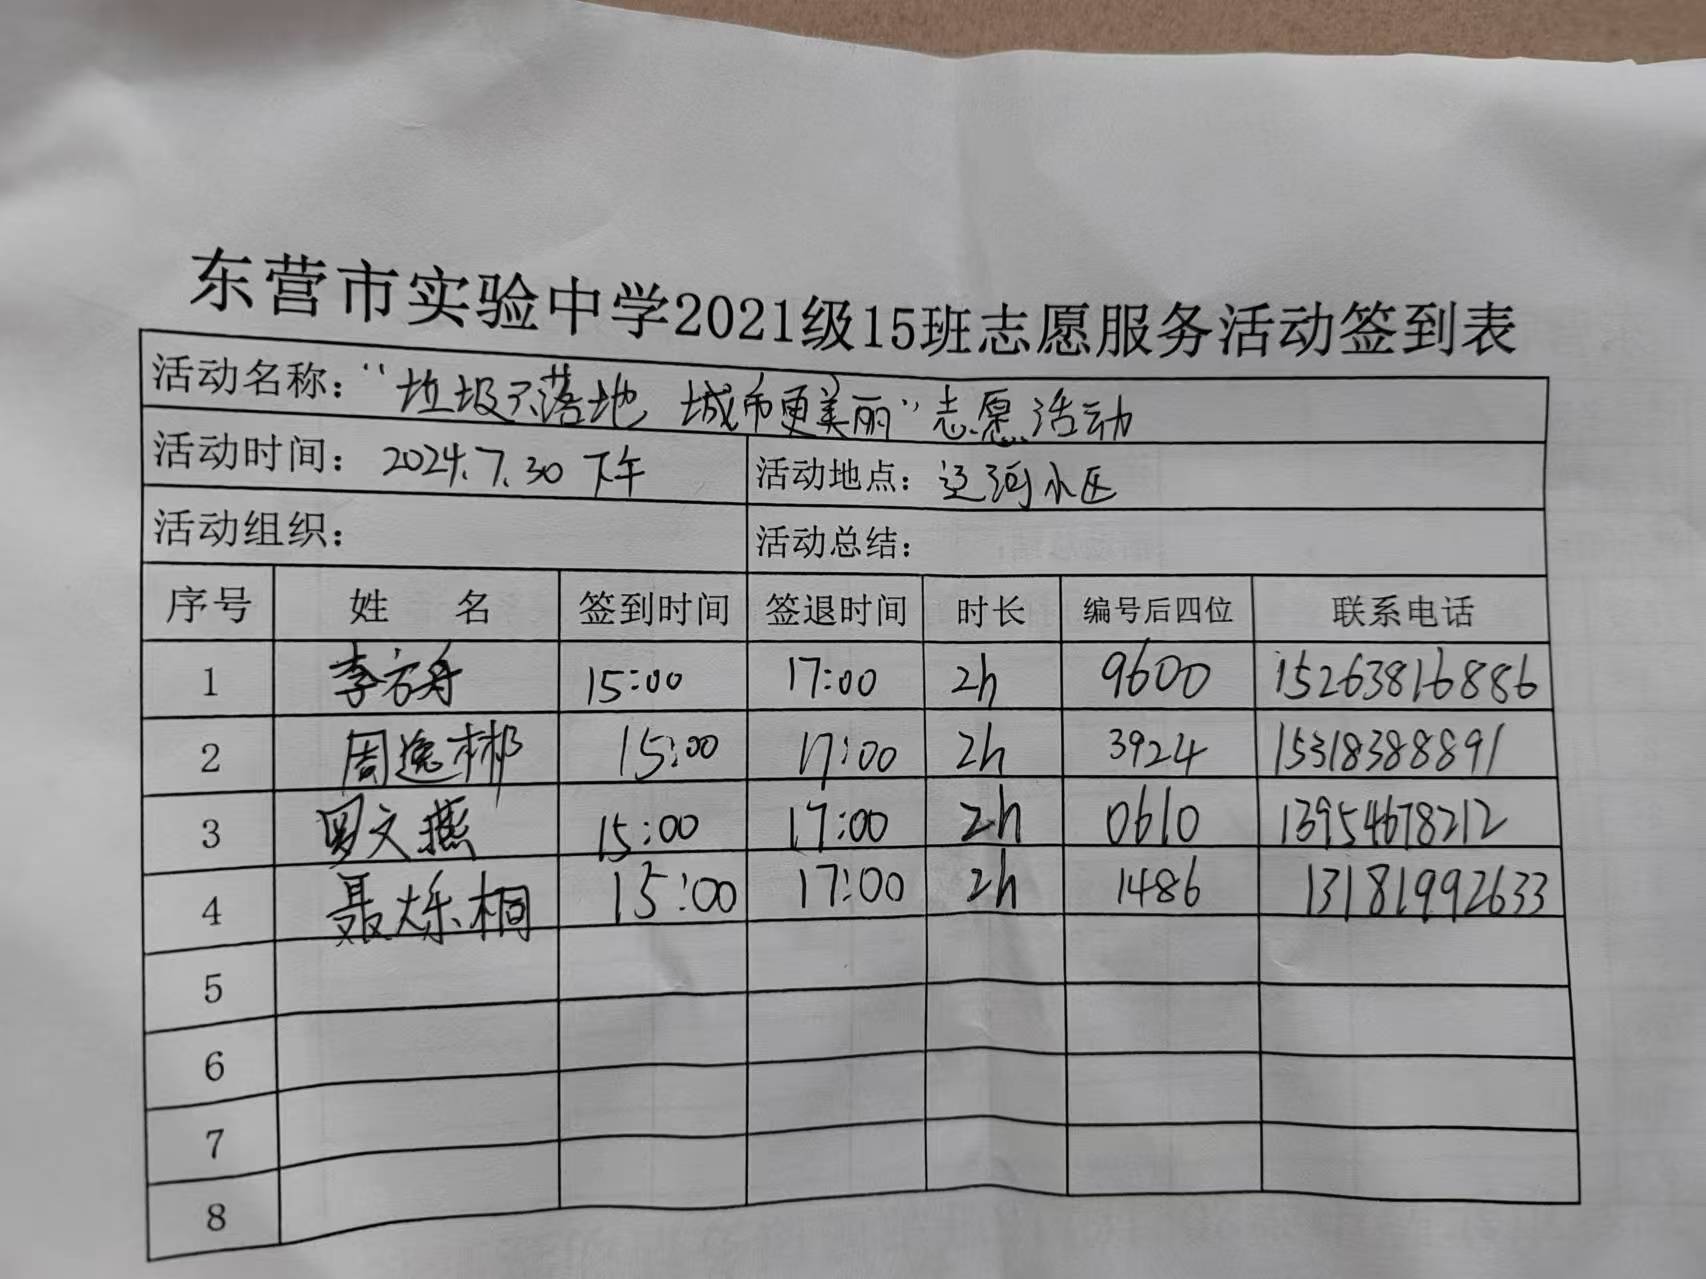 东营市实验中学2021级15班志愿服务活动签到表
活动名称：“垃圾不落地 城市更美丽”志愿活动
活动时间：2024.7.30 下午 活动地点：辽河小区
活动组织： 活动总结：
序号 姓 名 签到时间 签退时间 时长 编号后四位 联系电话
1 李方舟 15:00 17:00 2h 9600 15263816886
2 周逸彬 15:00 17:00 2h 3924 15318388891
3 罗文燕 15:00 17:00 2h 0610 13954678212
4 聂烁桐 15:00 17:00 2h 1486 13181992633
5
6
7
8